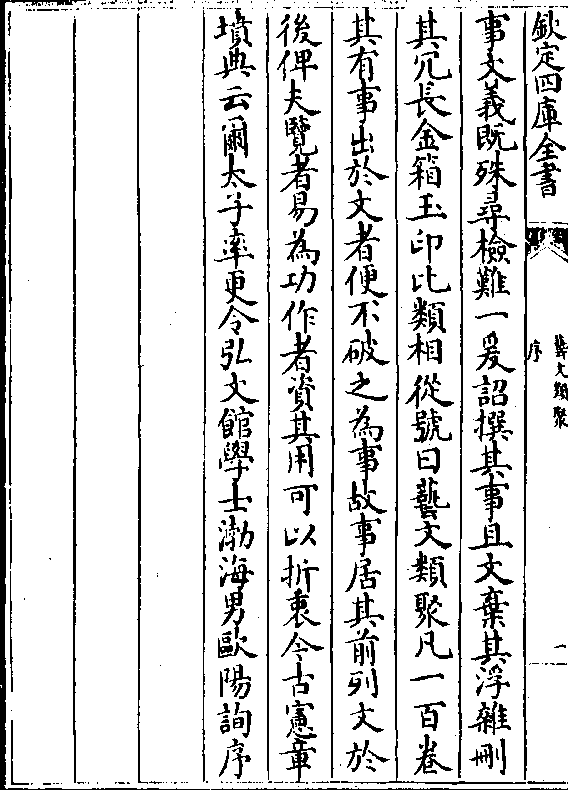 欽定四庫全書
藝文類聚
序
一
事文義既殊尋檢難一爰詔撰其事且文棄其浮雜刪
其冗長金箱玉印比類相從號曰藝文類聚凡一百卷
其有事出於文者便不破之為事故事居其前列文於
後俾夫覽者易為功作者資其用可以折衷今古憲章
墳典云爾太子率更令弘文館學士渤海男歐陽詢序